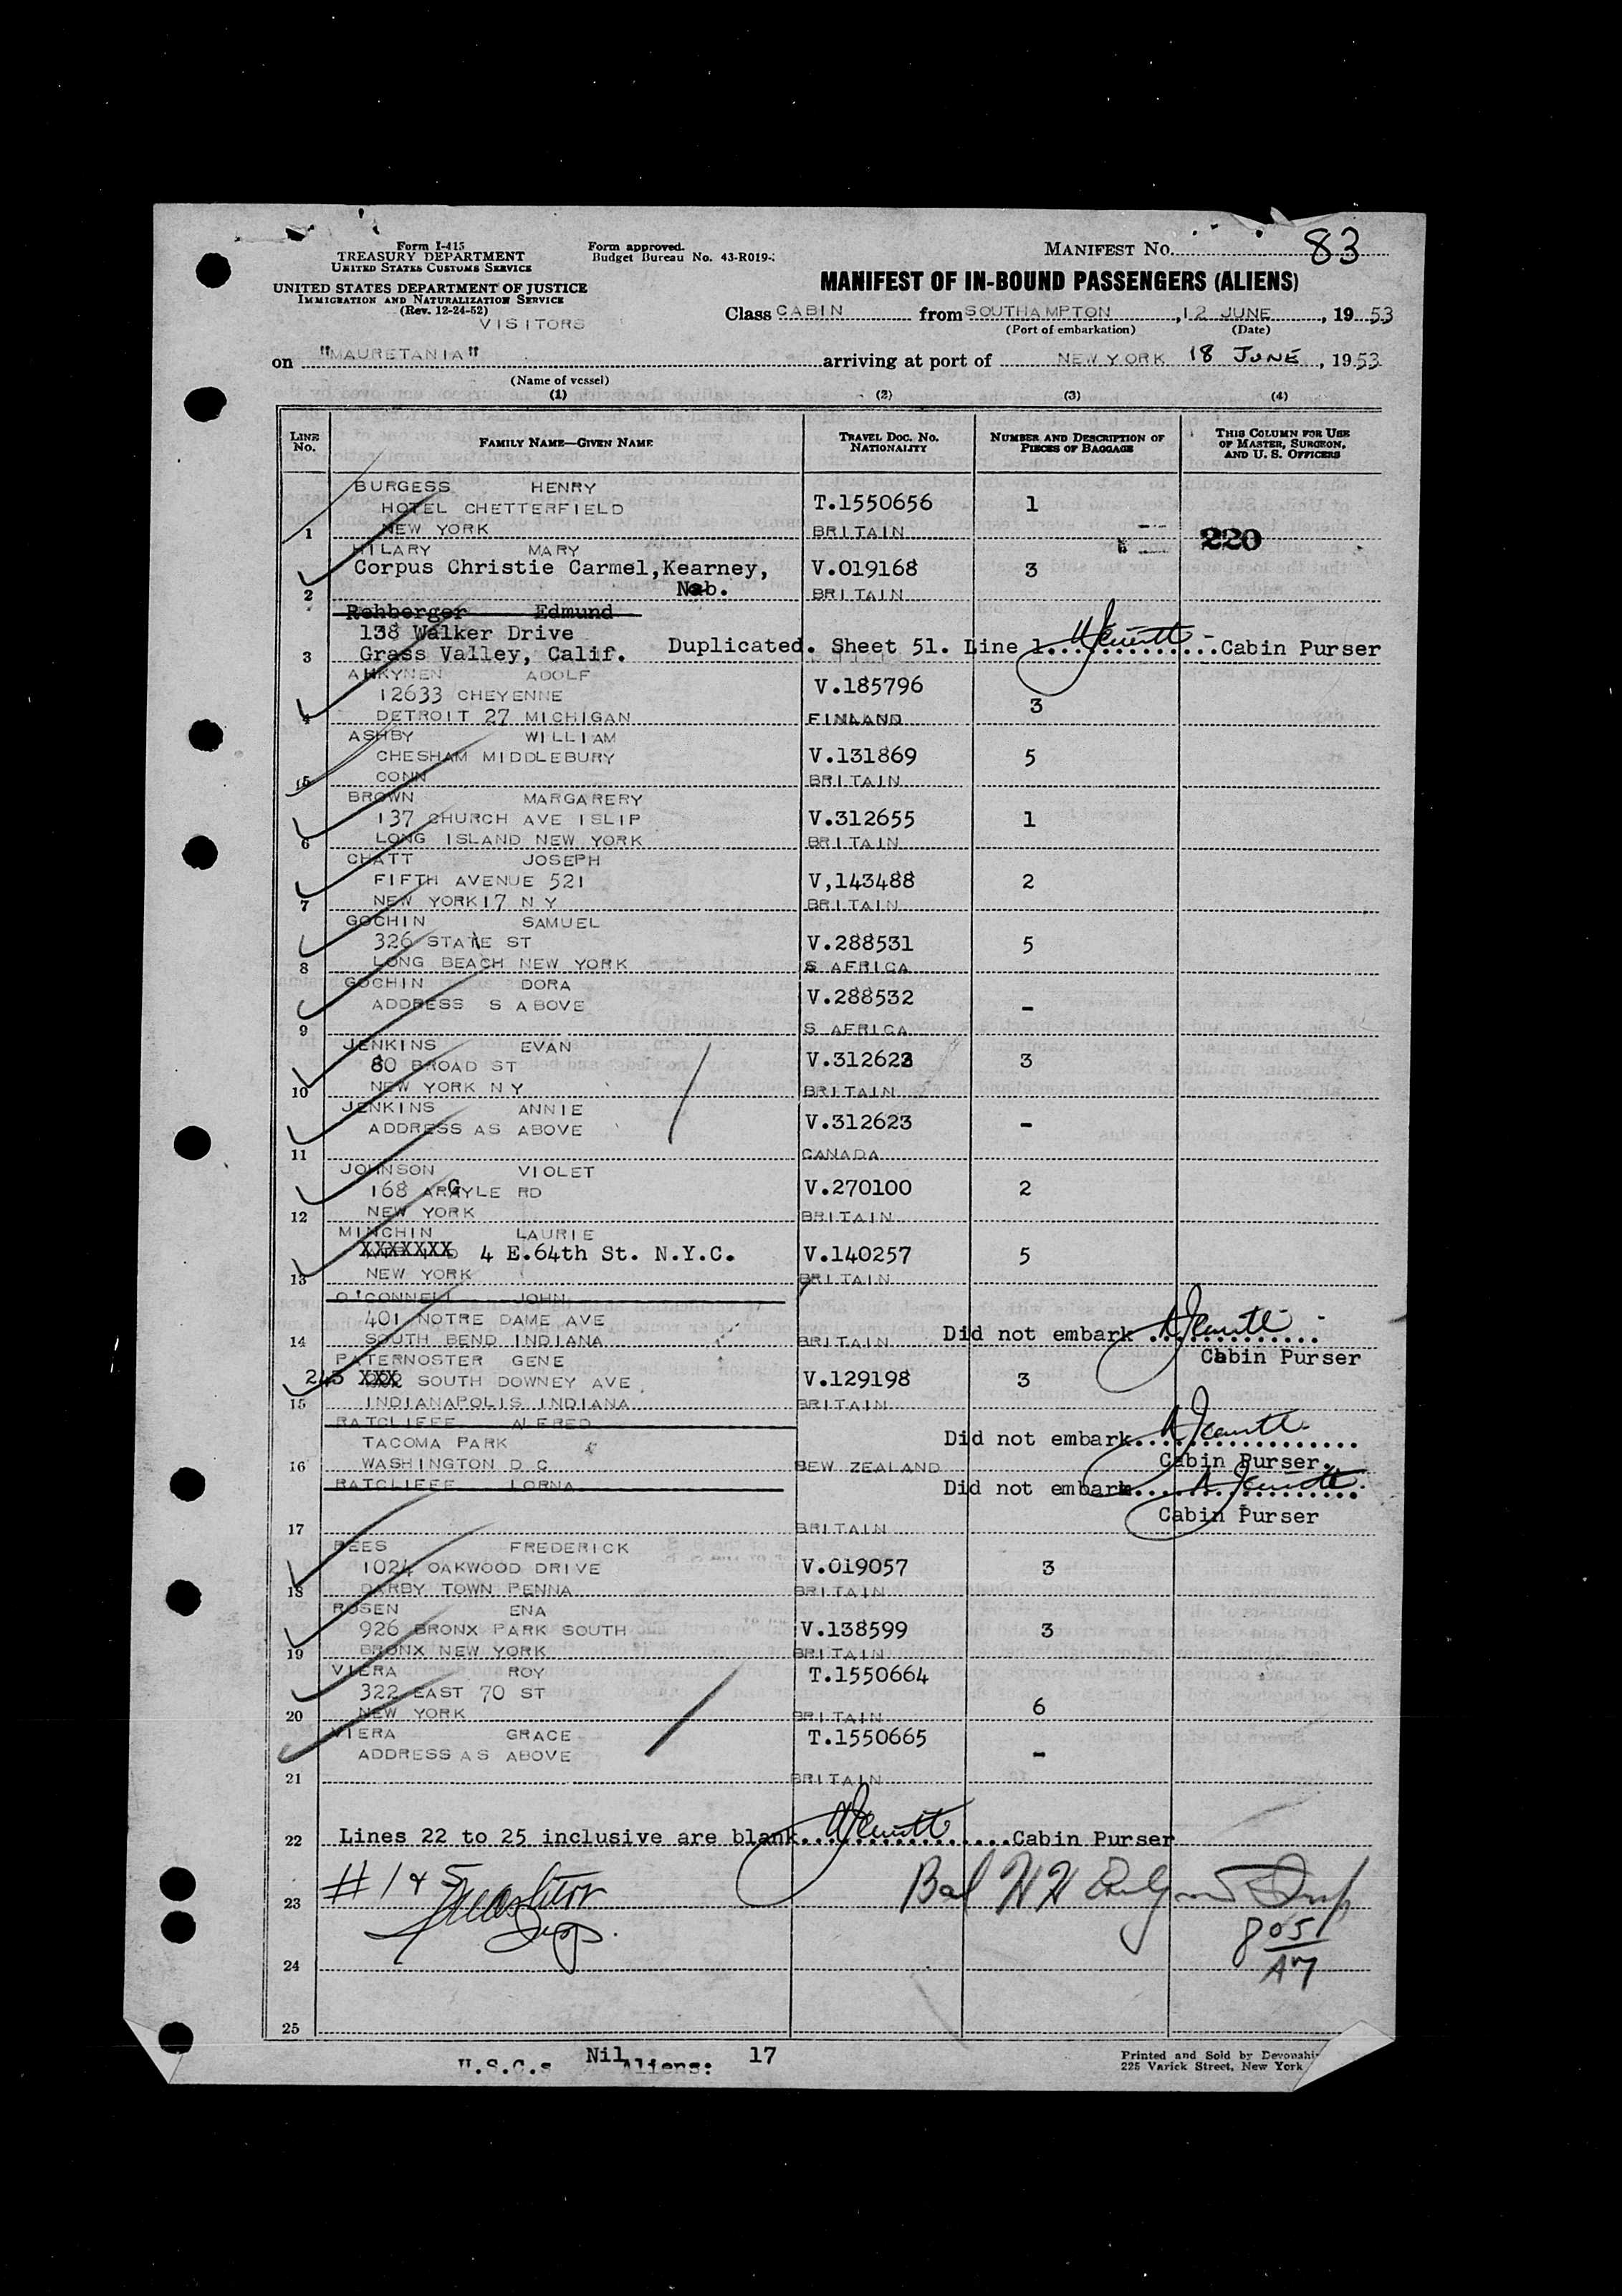 Form I-415
TREASURY DEPARTMENT
UNITED STATES CUSTOMS SERVICE
UNITED STATES DEPARTMENT OF JUSTICE
IMMIGRATION AND NATURALIZATION SERVICE
(Rev. 12-24-52)
VISITORS
Form approved.
Budget Bureau No. 43-R019-
MANIFEST No. 83
MANIFEST OF IN-BOUND PASSENGERS (ALIENS)
Class CABIN from SOUTHAMPTON, 12 JUNE, 1953
(Port of embarkation) (Date)
on "MAURETANIA" arriving at port of NEW YORK 18 JUNE, 1953
(Name of vessel)
(1) (2) (3) (4)
LINE No. FAMILY NAME—GIVEN NAME TRAVEL DOC. NO. NATIONALITY NUMBER AND DESCRIPTION OF PIECES OF BAGGAGE THIS COLUMN FOR USE OF MASTER, SURGEON, AND U. S. OFFICERS
BURGESS HENRY
HOTEL CHETTERFIELD T.1550656 1
1 NEW YORK BRITAIN 220
HILARY MARY
Corpus Christie Carmel, Kearney, V.019168 3
2 Neb. BRITAIN
Rehberger Edmund
138 Walker Drive
3 Grass Valley, Calif. Duplicated. Sheet 51. Line 1. Cabin Purser
AHKYNEN ADOLF
12633 CHEYENNE V.185796 3
4 DETROIT 27 MICHIGAN FINLAND
ASHBY WILLIAM
CHESHAM MIDDLEBURY V.131869 5
5 CONN BRITAIN
BROWN MARGARERY
137 CHURCH AVE ISLIP V.312655 1
6 LONG ISLAND NEW YORK BRITAIN
CHATT JOSEPH
FIFTH AVENUE 521 V,143488 2
7 NEW YORK17 N Y BRITAIN
GOCHIN SAMUEL
326 STATE ST V.288531 5
8 LONG BEACH NEW YORK S AFRICA
GOCHIN DORA
ADDRESS S ABOVE V.288532 -
9 S AFRICA
JENKINS EVAN
80 BROAD ST V.312622 3
10 NEW YORK N Y BRITAIN
JENKINS ANNIE
ADDRESS AS ABOVE V.312623 -
11 CANADA
JOHNSON VIOLET
168 ARGYLE RD V.270100 2
12 NEW YORK BRITAIN
MINCHIN LAURIE
XXXXXXX 4 E.64th St. N.Y.C. V.140257 5
13 NEW YORK BRITAIN
O'CONNELL JOHN
401 NOTRE DAME AVE
14 SOUTH BEND INDIANA BRITAIN Did not embark
Cabin Purser
PATERNOSTER GENE
245 XXX SOUTH DOWNEY AVE V.129198 3
15 INDIANAPOLIS INDIANA BRITAIN
RATCLIFFE ALFRED
TACOMA PARK Did not embark
16 WASHINGTON D C BEW ZEALAND Cabin Purser.
RATCLIFFE LORNA Did not embark
Cabin Purser
17 BRITAIN
REES FREDERICK
1024 OAKWOOD DRIVE V.019057 3
18 DARBY TOWN PENNA BRITAIN
ROSEN ENA
926 BRONX PARK SOUTH V.138599 3
19 BRONX NEW YORK BRITAIN
VIERA ROY T.1550664
322 EAST 70 ST 6
20 NEW YORK BRITAIN
VIERA GRACE T.1550665
ADDRESS AS ABOVE -
21 BRITAIN
22 Lines 22 to 25 inclusive are blank. Cabin Purser
23 # 1 & 5 Bal
Insp.
805
24 AM
25
U.S.C.s Nil Aliens: 17
Printed and Sold by
225 Varick Street, New York